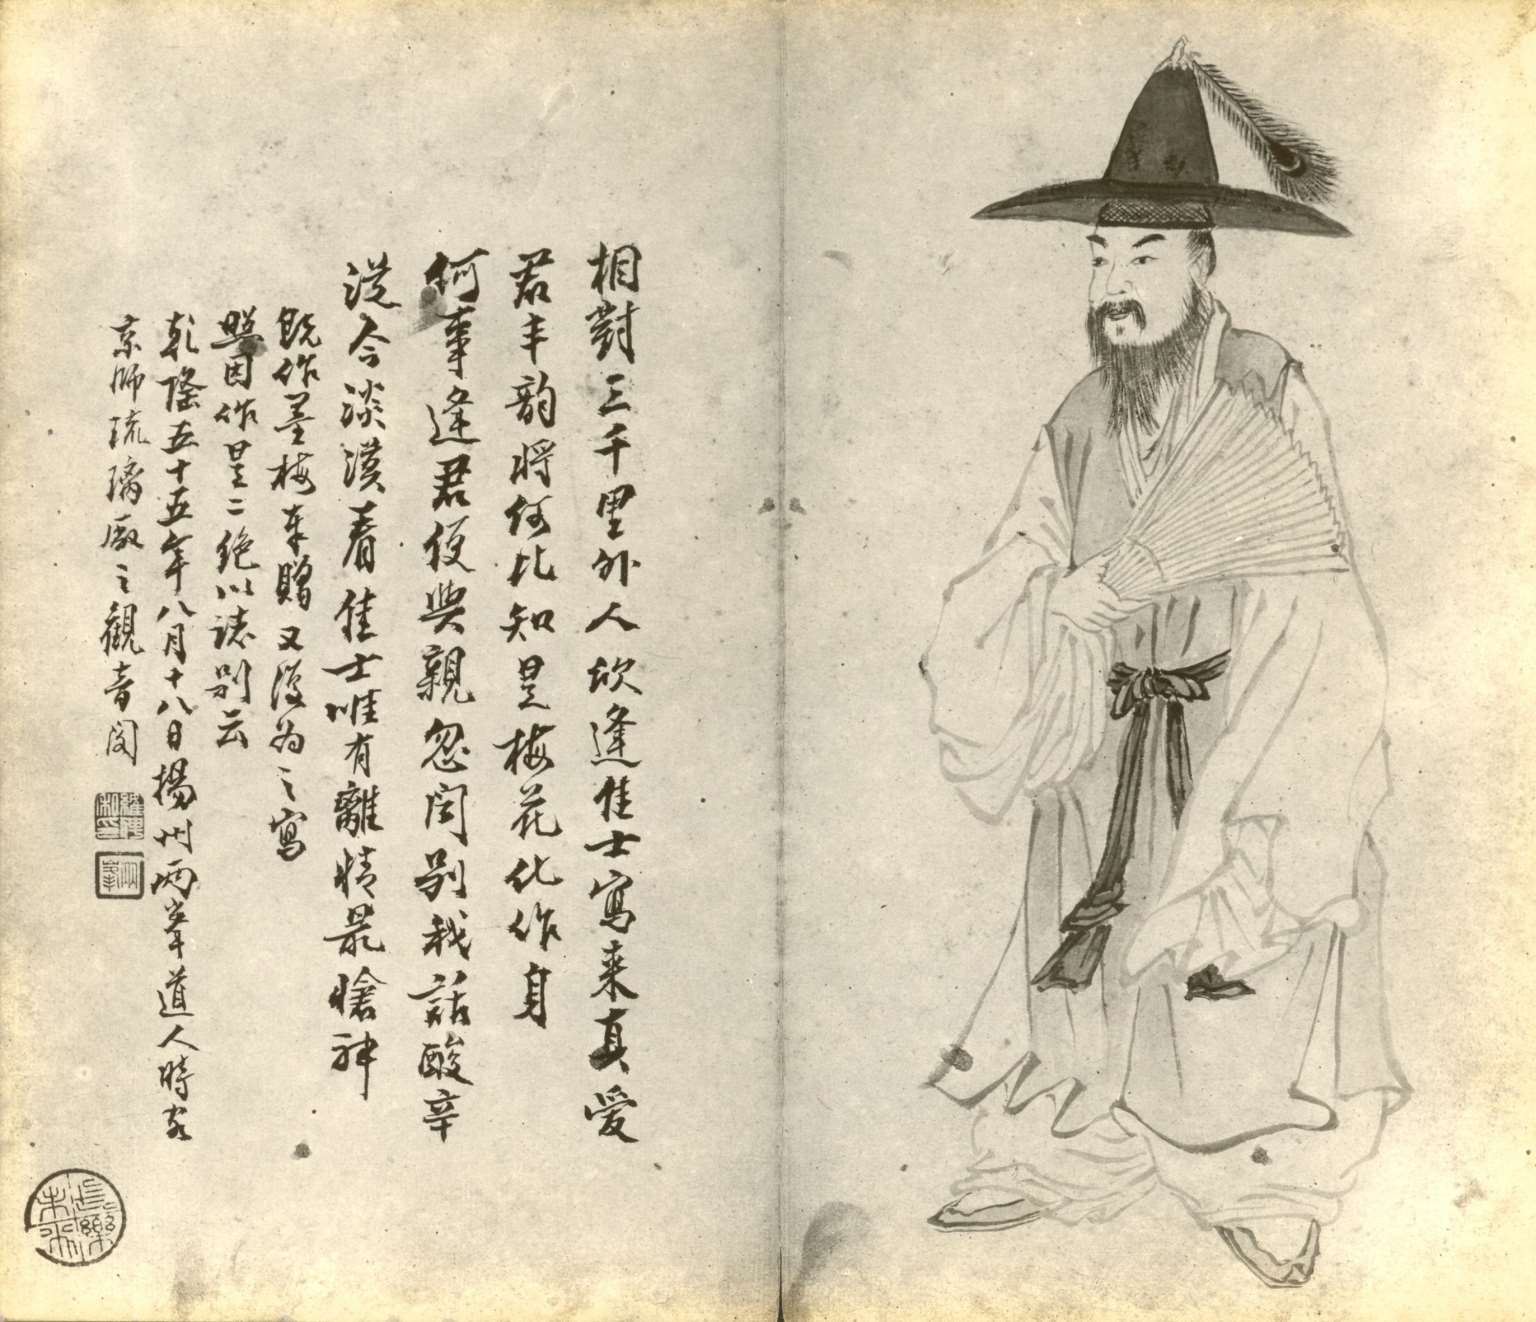 相對三千里外人欣逢佳士寫來真愛
君丰韵將何比知是梅花化作身
何事逢君便與親忽聞別我話酸辛
從今淡漠看佳士唯有離情最愴神
既作墨梅奉贈又復為之寫
照因作是二絶以誌別云
乾隆五十五年八月十八日揚州兩峯道人時客
京師琉璃廠之觀音閣